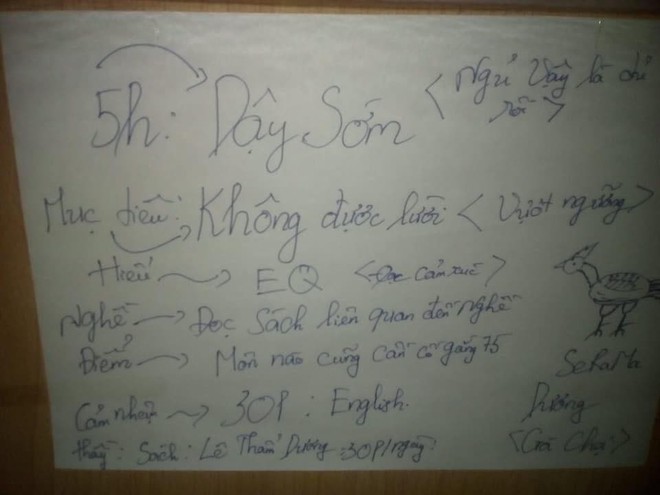 5h: Dậy Sớm < Ngủ Vậy là đủ rồi >
Mục tiêu: Không được lười < Vượt ngưỡng >
Hiểu → EQ < Đọc cảm xúc >
Nghề → Đọc Sách liên quan đến nghề
Điểm → Môn nào cũng cần cố gắng 75
SeRaMa
Cảm nhận → 30P : English.
Dương
thấy : Sách : Lê Thẩm Dương : 30P/ngày
< Gà Chọi >